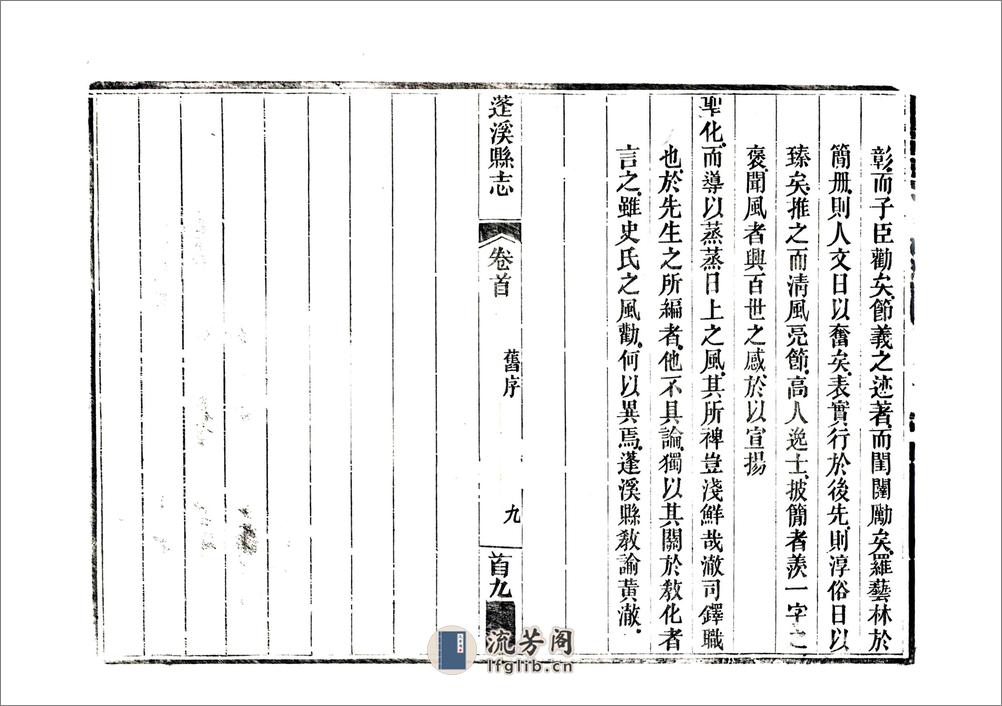 彰而子臣勸矣節義之迹著而閨闥勵矣羅藝林於
簡册則人文日以奮矣表實行於後先則淳俗日以
臻矣推之而清風亮節高人逸士披簡者羨一字之
褒聞風者興百世之感於以宣揚
聖化而導以蒸蒸日上之風其所裨豈淺鮮哉澈司鐸職
也於先生之所編者他不具論獨以其關於敎化者
言之雖史氏之風勸何以異焉蓬溪縣敎諭黃澈
蓬溪縣志
卷首
舊序
九
首九
流芳阁
lfglib.cn